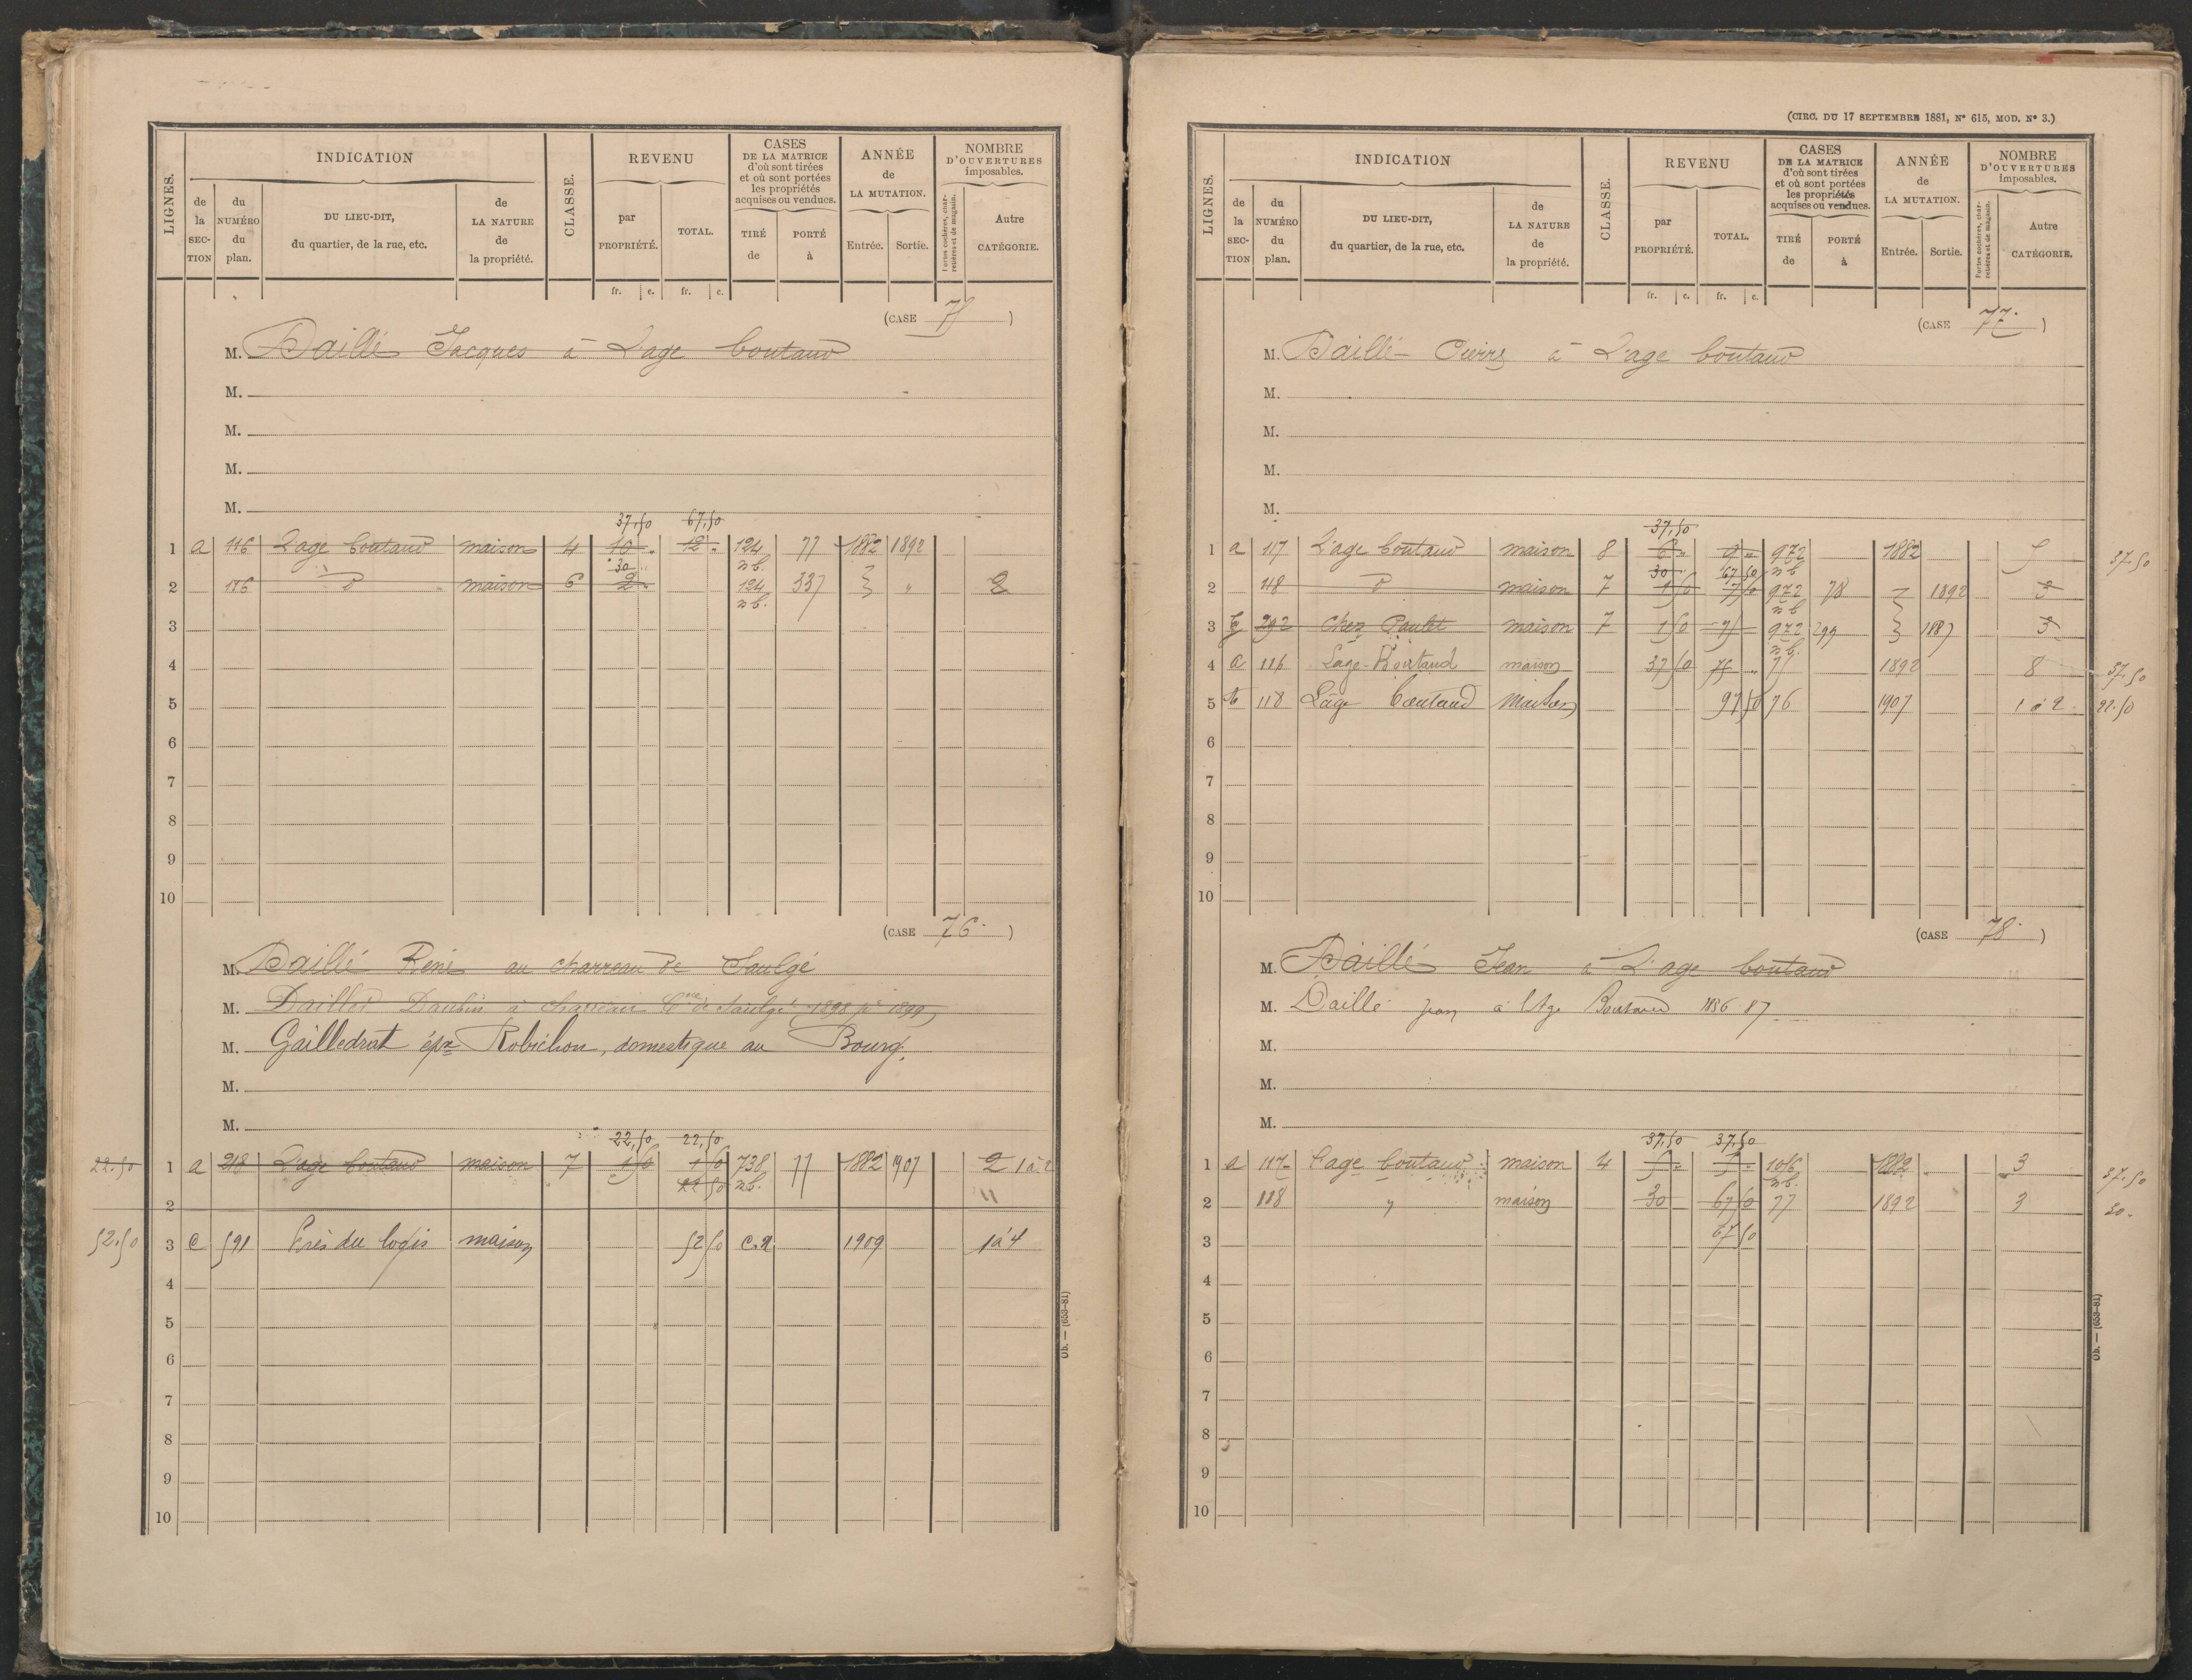 LIGNES.
INDICATION
de la SECTION
du NUMÉRO du plan.
DU LIEU-DIT, du quartier, de la rue, etc.
de LA NATURE de la propriété.
CLASSE.
REVENU
par PROPRIÉTÉ.
TOTAL.
CASES DE LA MATRICE d'où sont tirées et où sont portées les propriétés acquises ou vendues.
TIRÉ de
PORTÉ à
ANNÉE de LA MUTATION.
Entrée.
Sortie.
NOMBRE D'OUVERTURES imposables.
Portes cochères, charretières et de magasin.
Autre CATÉGORIE.
fr. c. fr. c.
(CASE 75)
M. Daillé Jacques à Lage boutaud
M.
M.
M.
M.
37,50 67,50
1 a 116 Lage boutaud maison 4 10 " 12 " 124 77 1882 1892
30 n b.
2 116 d° maison 6 2 " 124 337 " 2
n b.
3
4
5
6
7
8
9
10
(CASE 76.)
M. Daillé René au charreau de Saulgé
M. Daillé Daubin à charreau Cne de Saulgé (1898 pr 1899)
M. Gailledrat épx Robichon, domestique au Bourg.
M.
M.
22,50 22,50
22.50 1 a 218 Lage boutaud maison 7 1 50 1 50 738 77 1882 1907 2 1 à 2
22 50 n b.
2
52.50 3 C 591 Près du logis maison 52 50 C.n 1909 1 à 4
4
5
6
7
8
9
10
Ob. — (653-81)
(CIRC. DU 17 SEPTEMBRE 1881, N° 615, MOD. N° 3.)
LIGNES.
INDICATION
de la SECTION
du NUMÉRO du plan.
DU LIEU-DIT, du quartier, de la rue, etc.
de LA NATURE de la propriété.
CLASSE.
REVENU
par PROPRIÉTÉ.
TOTAL.
CASES DE LA MATRICE d'où sont tirées et où sont portées les propriétés acquises ou vendues.
TIRÉ de
PORTÉ à
ANNÉE de LA MUTATION.
Entrée.
Sortie.
NOMBRE D'OUVERTURES imposables.
Portes cochères, charretières et de magasin.
Autre CATÉGORIE.
fr. c. fr. c.
(CASE 77.)
M. Daillé Pierre à L'age boutaud
M.
M.
M.
M.
37,50
1 a 117 L'age boutaud maison 8 6 " 9 " 972 1882 5 37.50
30 67 50 n b
2 118 d° maison 7 1 50 7 50 972 78 1892 3
n b
3 292 Chez Paulet maison 7 1 50 972 299 1887 3
n b.
4 a 116 Lage-Boutaud maison 37 50 75 " 75 1892 8 37.50
5 118 L'age boutaud maison 97 50 76 1907 1 à 2 22.50
6
7
8
9
10
(CASE 78.)
M. Daillé Jean à L'age boutaud
M. Daillé Jean à l'Age Boutaud 1886-87
M.
M.
M.
37,50 37,50
1 a 117 Lage boutaud maison 4 5 " 5 " 1056 1882 3 37.50
n b.
2 118 " maison 30 67 50 77 1892 3 30.
3 67 50
4
5
6
7
8
9
10
Ob. — (653-81)